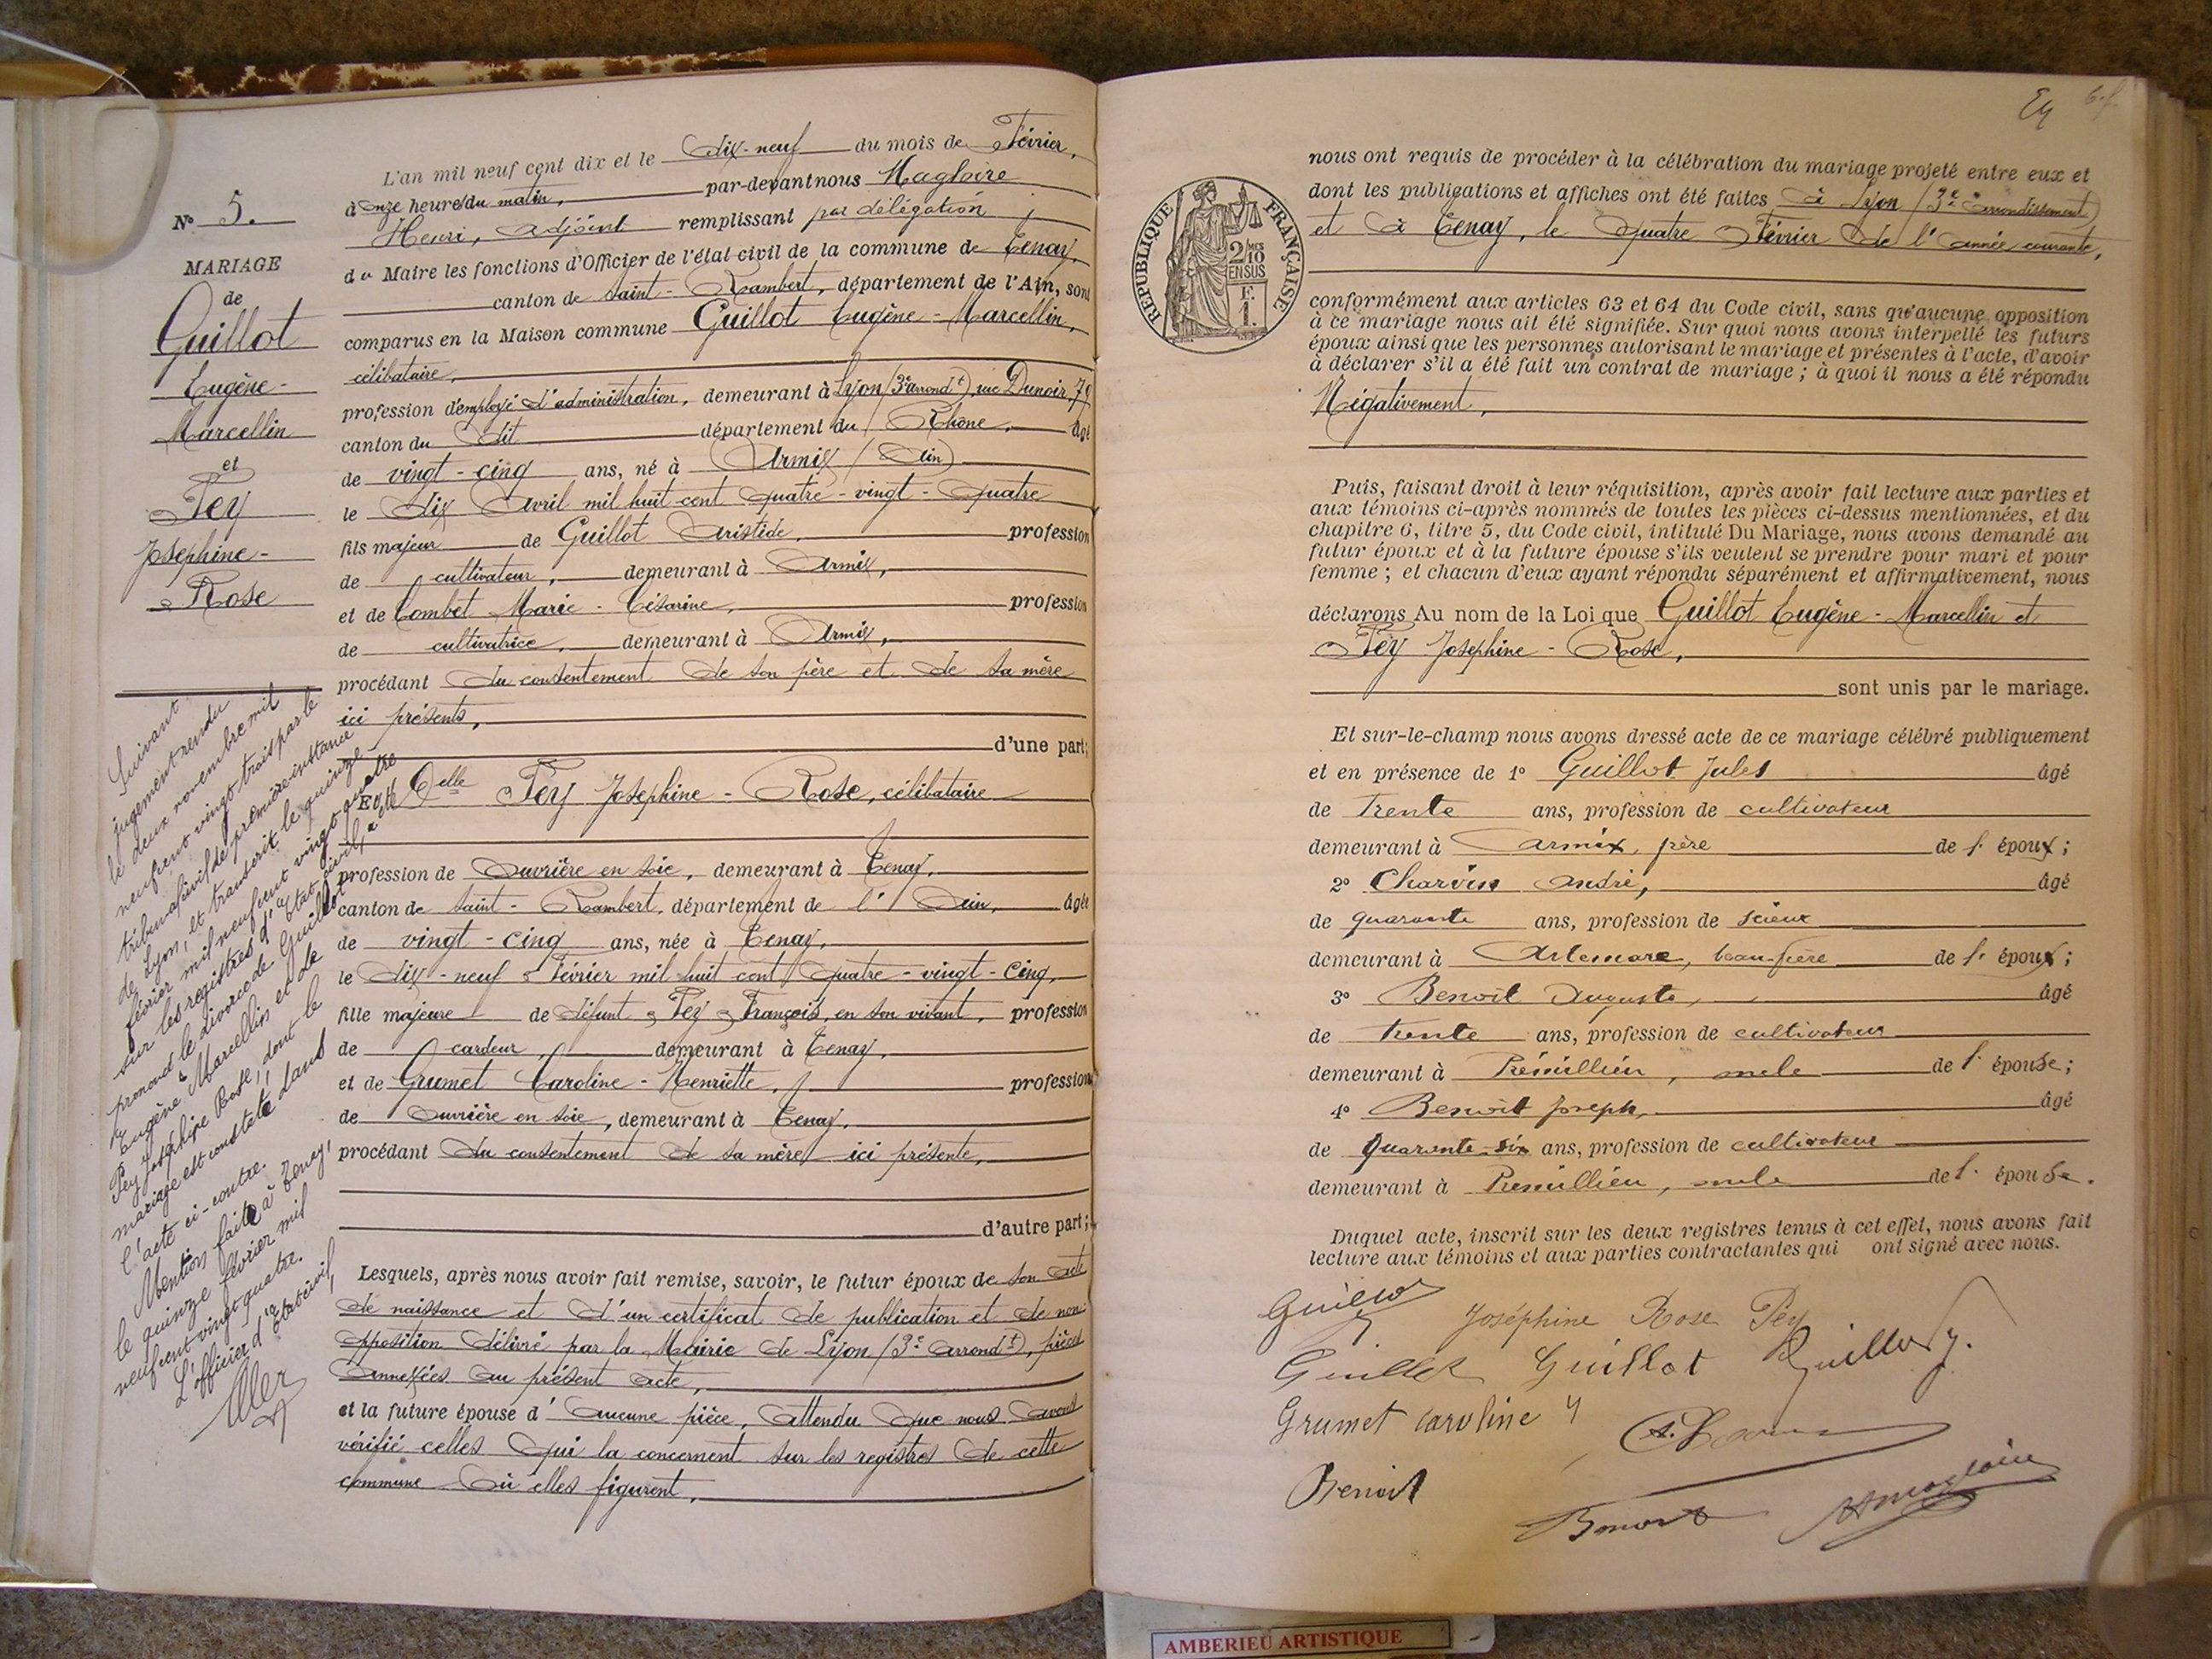 N° 5.
MARIAGE
de
Guillot
Eugène-
Marcellin
et
Fey
Joséphine-
Rose
Suivant
jugement rendu
le deux novembre mil
neuf cent vingt trois par le
tribunal civil de première instance
de Lyon, et transcrit le quinze
février mil neuf cent vingt quatre
sur les registres d'Etat civil, a été
prononcé le divorce de Guillot
Eugène Marcellin et de
Fey Joséphine Rose, dont le
mariage est constaté dans
l'acte ci-contre.
Mention faite à Tenay,
le quinze février mil
neuf cent vingt quatre.
L'officier d'Etat civil,
L'an mil neuf cent dix et le dix-neuf du mois de Février,
à onze heures du matin, par-devant nous Magloire
Henri, adjoint remplissant par délégation
du Maire les fonctions d'Officier de l'état civil de la commune de Tenay,
canton de Saint-Rambert, département de l'Ain, sont
comparus en la Maison commune Guillot Eugène-Marcellin,
célibataire,
profession d'employé d'administration, demeurant à Lyon (3e arrondt), rue Dunoir, 74
canton du dit département du Rhône, âgé
de vingt-cinq ans, né à Armix (Ain)
le dix Avril mil huit cent quatre-vingt-quatre
fils majeur de Guillot Aristide, profession
de cultivateur, demeurant à Armix,
et de Combet Marie-Césarine, profession
de cultivatrice, demeurant à Armix,
procédant du consentement de son père et de sa mère
ici présents,
d'une part;
Et Delle Fey Joséphine-Rose, célibataire
profession de ouvrière en soie, demeurant à Tenay,
canton de Saint-Rambert, département de l'Ain, âgée
de vingt-cinq ans, née à Tenay,
le dix-neuf Février mil huit cent quatre-vingt-cinq,
fille majeure de défunt Fey François, en son vivant, profession
de cardeur, demeurant à Tenay,
et de Grumet Caroline-Henriette, profession
de ouvrière en soie, demeurant à Tenay,
procédant du consentement de sa mère ici présente,
d'autre part;
Lesquels, après nous avoir fait remise, savoir, le futur époux de son acte
de naissance et d'un certificat de publication et de non-
opposition délivré par la Mairie de Lyon (3e arrondt), pièces
annexées au présent acte,
et la future épouse d'aucune pièce, attendu que nous avons
vérifié celles qui la concernent sur les registres de cette
commune où elles figurent,
RÉPUBLIQUE FRANÇAISE
2/10 MES
EN SUS
F.
1.
nous ont requis de procéder à la célébration du mariage projeté entre eux et
dont les publications et affiches ont été faites à Lyon (3e arrondissement)
et à Tenay, le quatre Février de l'année courante,
conformément aux articles 63 et 64 du Code civil, sans qu'aucune opposition
à ce mariage nous ait été signifiée. Sur quoi nous avons interpellé les futurs
époux ainsi que les personnes autorisant le mariage et présentes à l'acte, d'avoir
à déclarer s'il a été fait un contrat de mariage; à quoi il nous a été répondu
Négativement,
Puis, faisant droit à leur réquisition, après avoir fait lecture aux parties et
aux témoins ci-après nommés de toutes les pièces ci-dessus mentionnées, et du
chapitre 6, titre 5, du Code civil, intitulé Du Mariage, nous avons demandé au
futur époux et à la future épouse s'ils veulent se prendre pour mari et pour
femme; et chacun d'eux ayant répondu séparément et affirmativement, nous
déclarons Au nom de la Loi que Guillot Eugène-Marcellin et
Fey Joséphine-Rose,
sont unis par le mariage.
Et sur-le-champ nous avons dressé acte de ce mariage célébré publiquement
et en présence de 1° Guillot Jules âgé
de trente ans, profession de cultivateur
demeurant à Armix, frère de l'époux;
2° Charvin André, âgé
de quarante ans, profession de scieur
demeurant à Artemare, beau-frère de l'époux;
3° Benoit Auguste, âgé
de trente ans, profession de cultivateur
demeurant à Prémillieu, oncle de l'épouse;
4° Benoit Joseph, âgé
de quarante-six ans, profession de cultivateur
demeurant à Prémillieu, oncle de l'épouse.
Duquel acte, inscrit sur les deux registres tenus à cet effet, nous avons fait
lecture aux témoins et aux parties contractantes qui ont signé avec nous.
Guillot Joséphine Rose Fey
Guillot Guillot Guillot J.
Grumet caroline
Benoit
Benoit HMagloire
AMBERIEU ARTISTIQUE